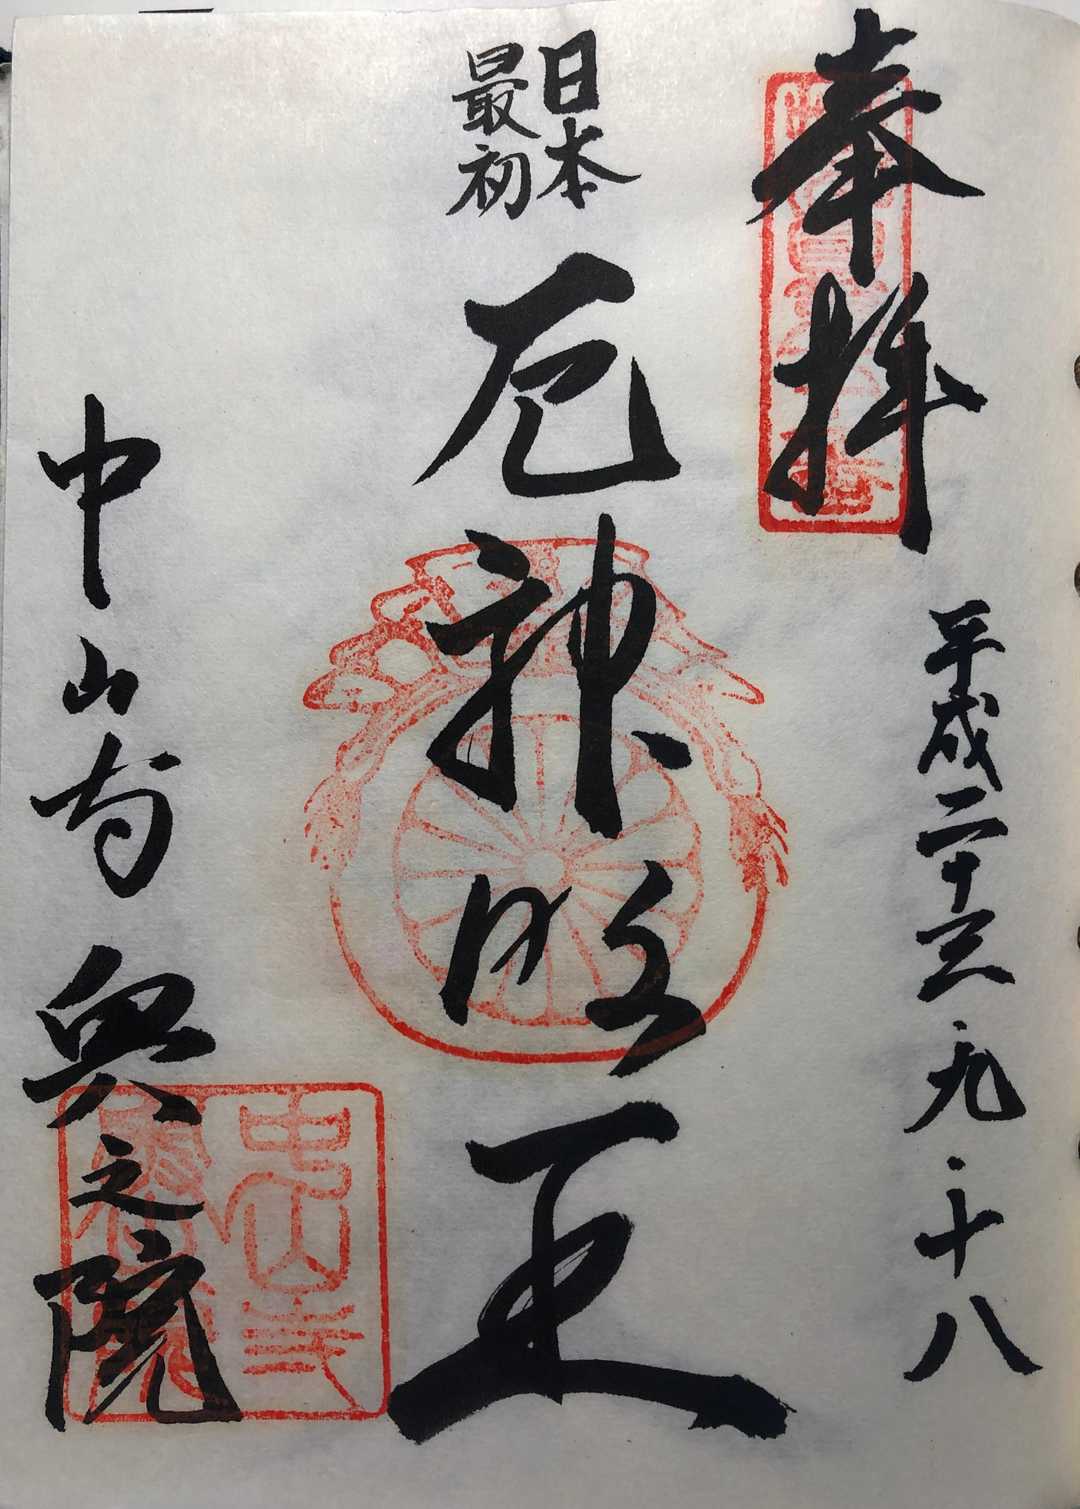 奉拝
平成二十三.九.十八
日本
最初
厄神明王
中山寺奥之院
中山寺
奥之院